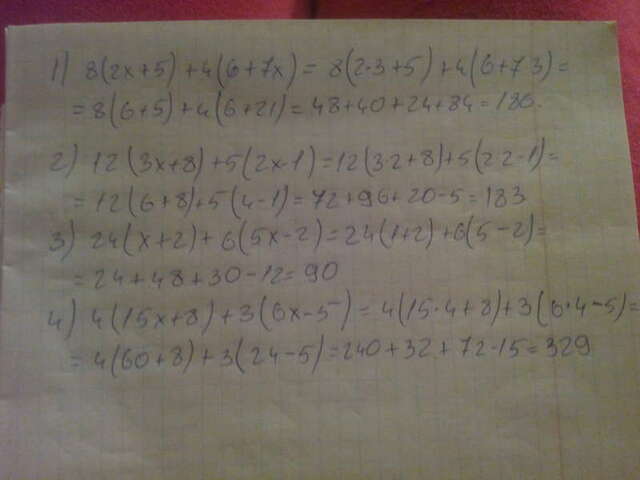 1) 8(2x+5)+4(6+7x)= 8(2·3+5)+4(6+7 3)=
=8(6+5)+4(6+21)=48+40+24+84=186.
2) 12(3x+8)+5(2x-1)=12(3·2+8)+5(2 2-1)=
=12(6+8)+5(4-1)=72+96+20-5=183
3) 24(x+2)+6(5x-2)=24(1+2)+6(5-2)=
=24+48+30-12=90
4) 4(15x+8)+3(6x-5)=4(15·4+8)+3(6·4-5)=
=4(60+8)+3(24-5)=240+32+72-15=329